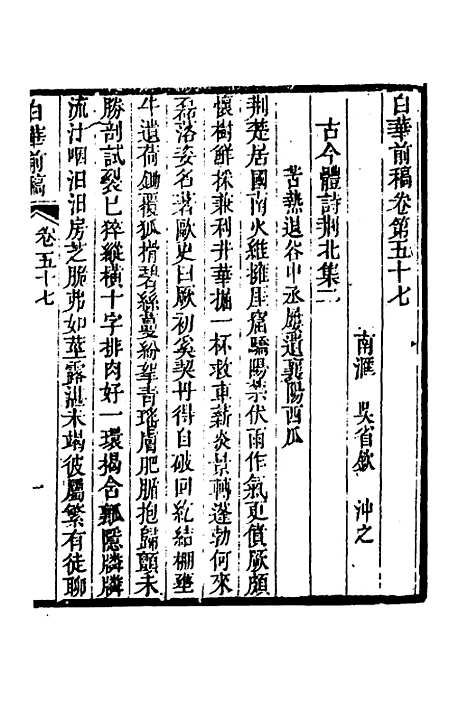 白華前稿卷第五十七
南滙 吳省欽 沖之
古今體詩荆北集二
苦熱遺谷中丞屢遺襄陽西瓜
荆楚居國南火維擁崖窟驕陽禁伏雨作氣更僨厥頗
懷樹鮮採兼利井華搰一杯救車薪炎景轉蓬勃何來
磊落姿名著歐史曰厥初奚契丹得自破回紇結棚壅
牛遺荷鋤覆狐搰碧絲蔓紛拏青瑤膚肥腯抱歸顫未
勝剖試裂已猝縱橫十字排肉好一環揭合瓤隱轔轔
流汁咽汨汨房芝脆弗如莖露湛未竭彼屬繁有徒聊
白華前稿 卷五十七 一